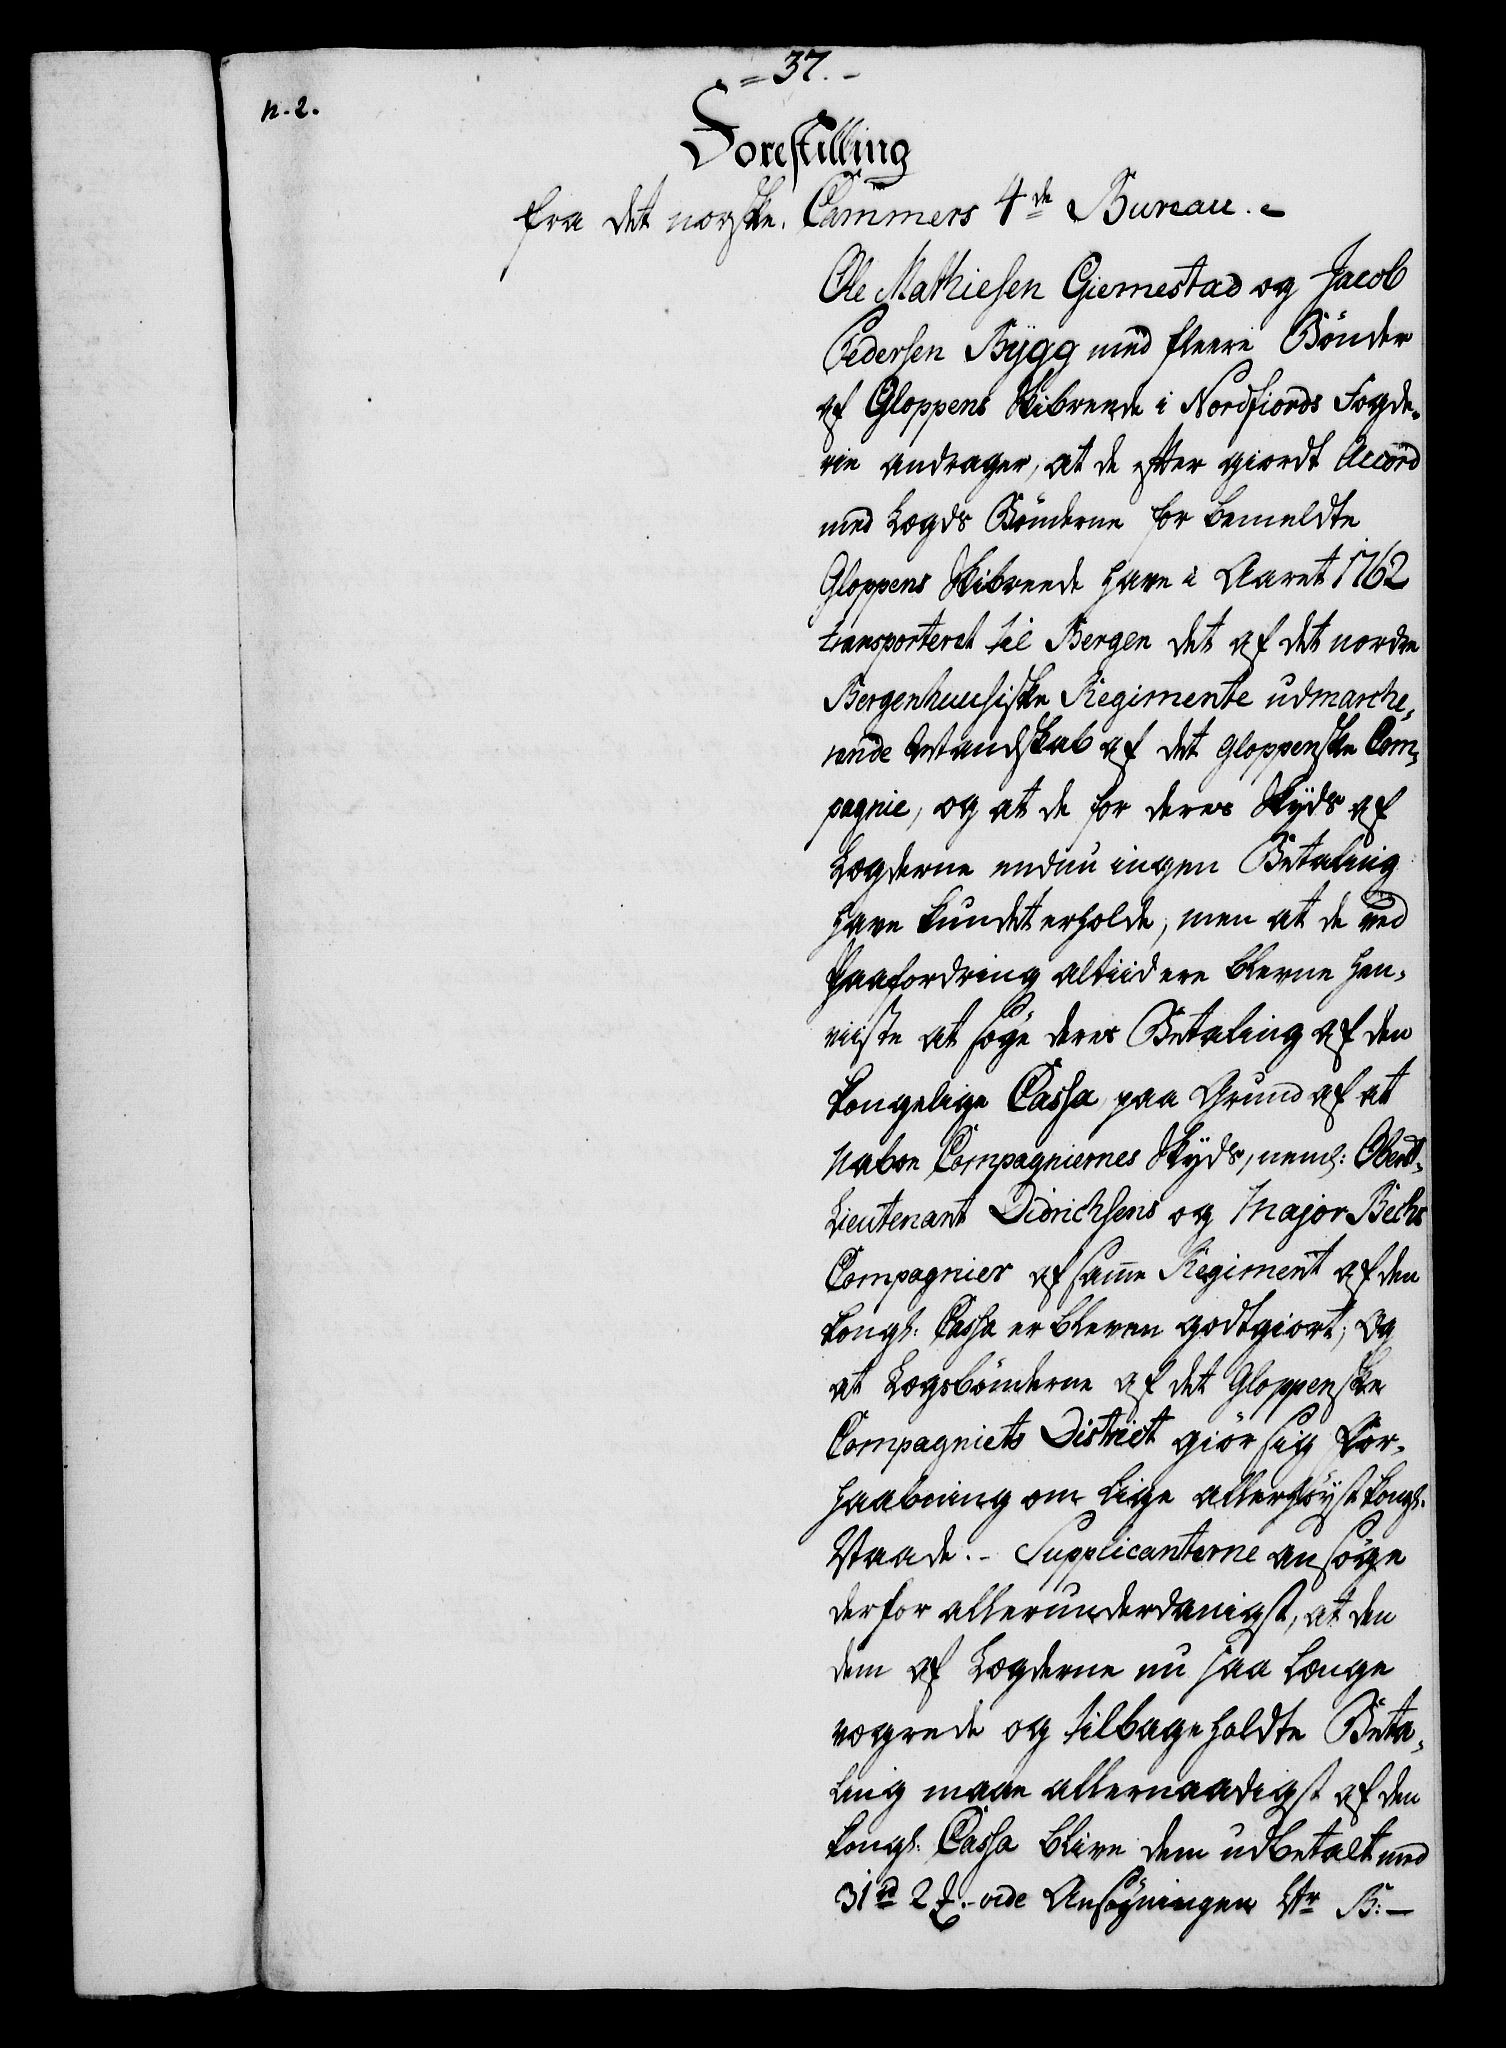 = 37. -
n. 2.
Forestilling
fra det norske Cammers 4de Bureau. -
Ole Mathiesen Giemestad og Jacob
Pedersen Bÿgg med fleere Bönder
af Gloppens Skibrende i Nordfiords Fogde-
rie andrager, at de efter giordt Accord
med Lægds Bönderne for bemeldte
Gloppens Skibrende have i Aaret 1762
transporteret til Bergen det af det nordre
Bergenhuusiske Regimente udmarche-
rende Mandskab af det Gloppenske Com-
pagnie, og at de for deres Skÿds af
Lægderne endnu ingen Betaling
have kundet erholde, men at de ved
Paafordring altiid ere blevne hen-
viiste at søge deres Betaling af den
kongelige Cassa, paa Grund af at
naboe Compagniernes Skÿds, neml: Oberst-
Lieutenant Didrichsens og Major Bechs
Compagnier af samme Regiment af den
kongl: Cassa er bleven godtgiort; og
at Lægsbönderne af det Gloppenske
Compagniets District giör sig For-
haabning om lige allerhöÿst kongl.
Naade. - Supplicanterne ansöge
derfor allerunderdanigst, at den
dem af Lægderne nu saa længe
vægrede og tilbageholdte Beta-
ling maae allernaadigst af den
kongl: Cassa blive dem udbetalt med
31 rd 2 ß. - vide Ansögningen Ltr B: -